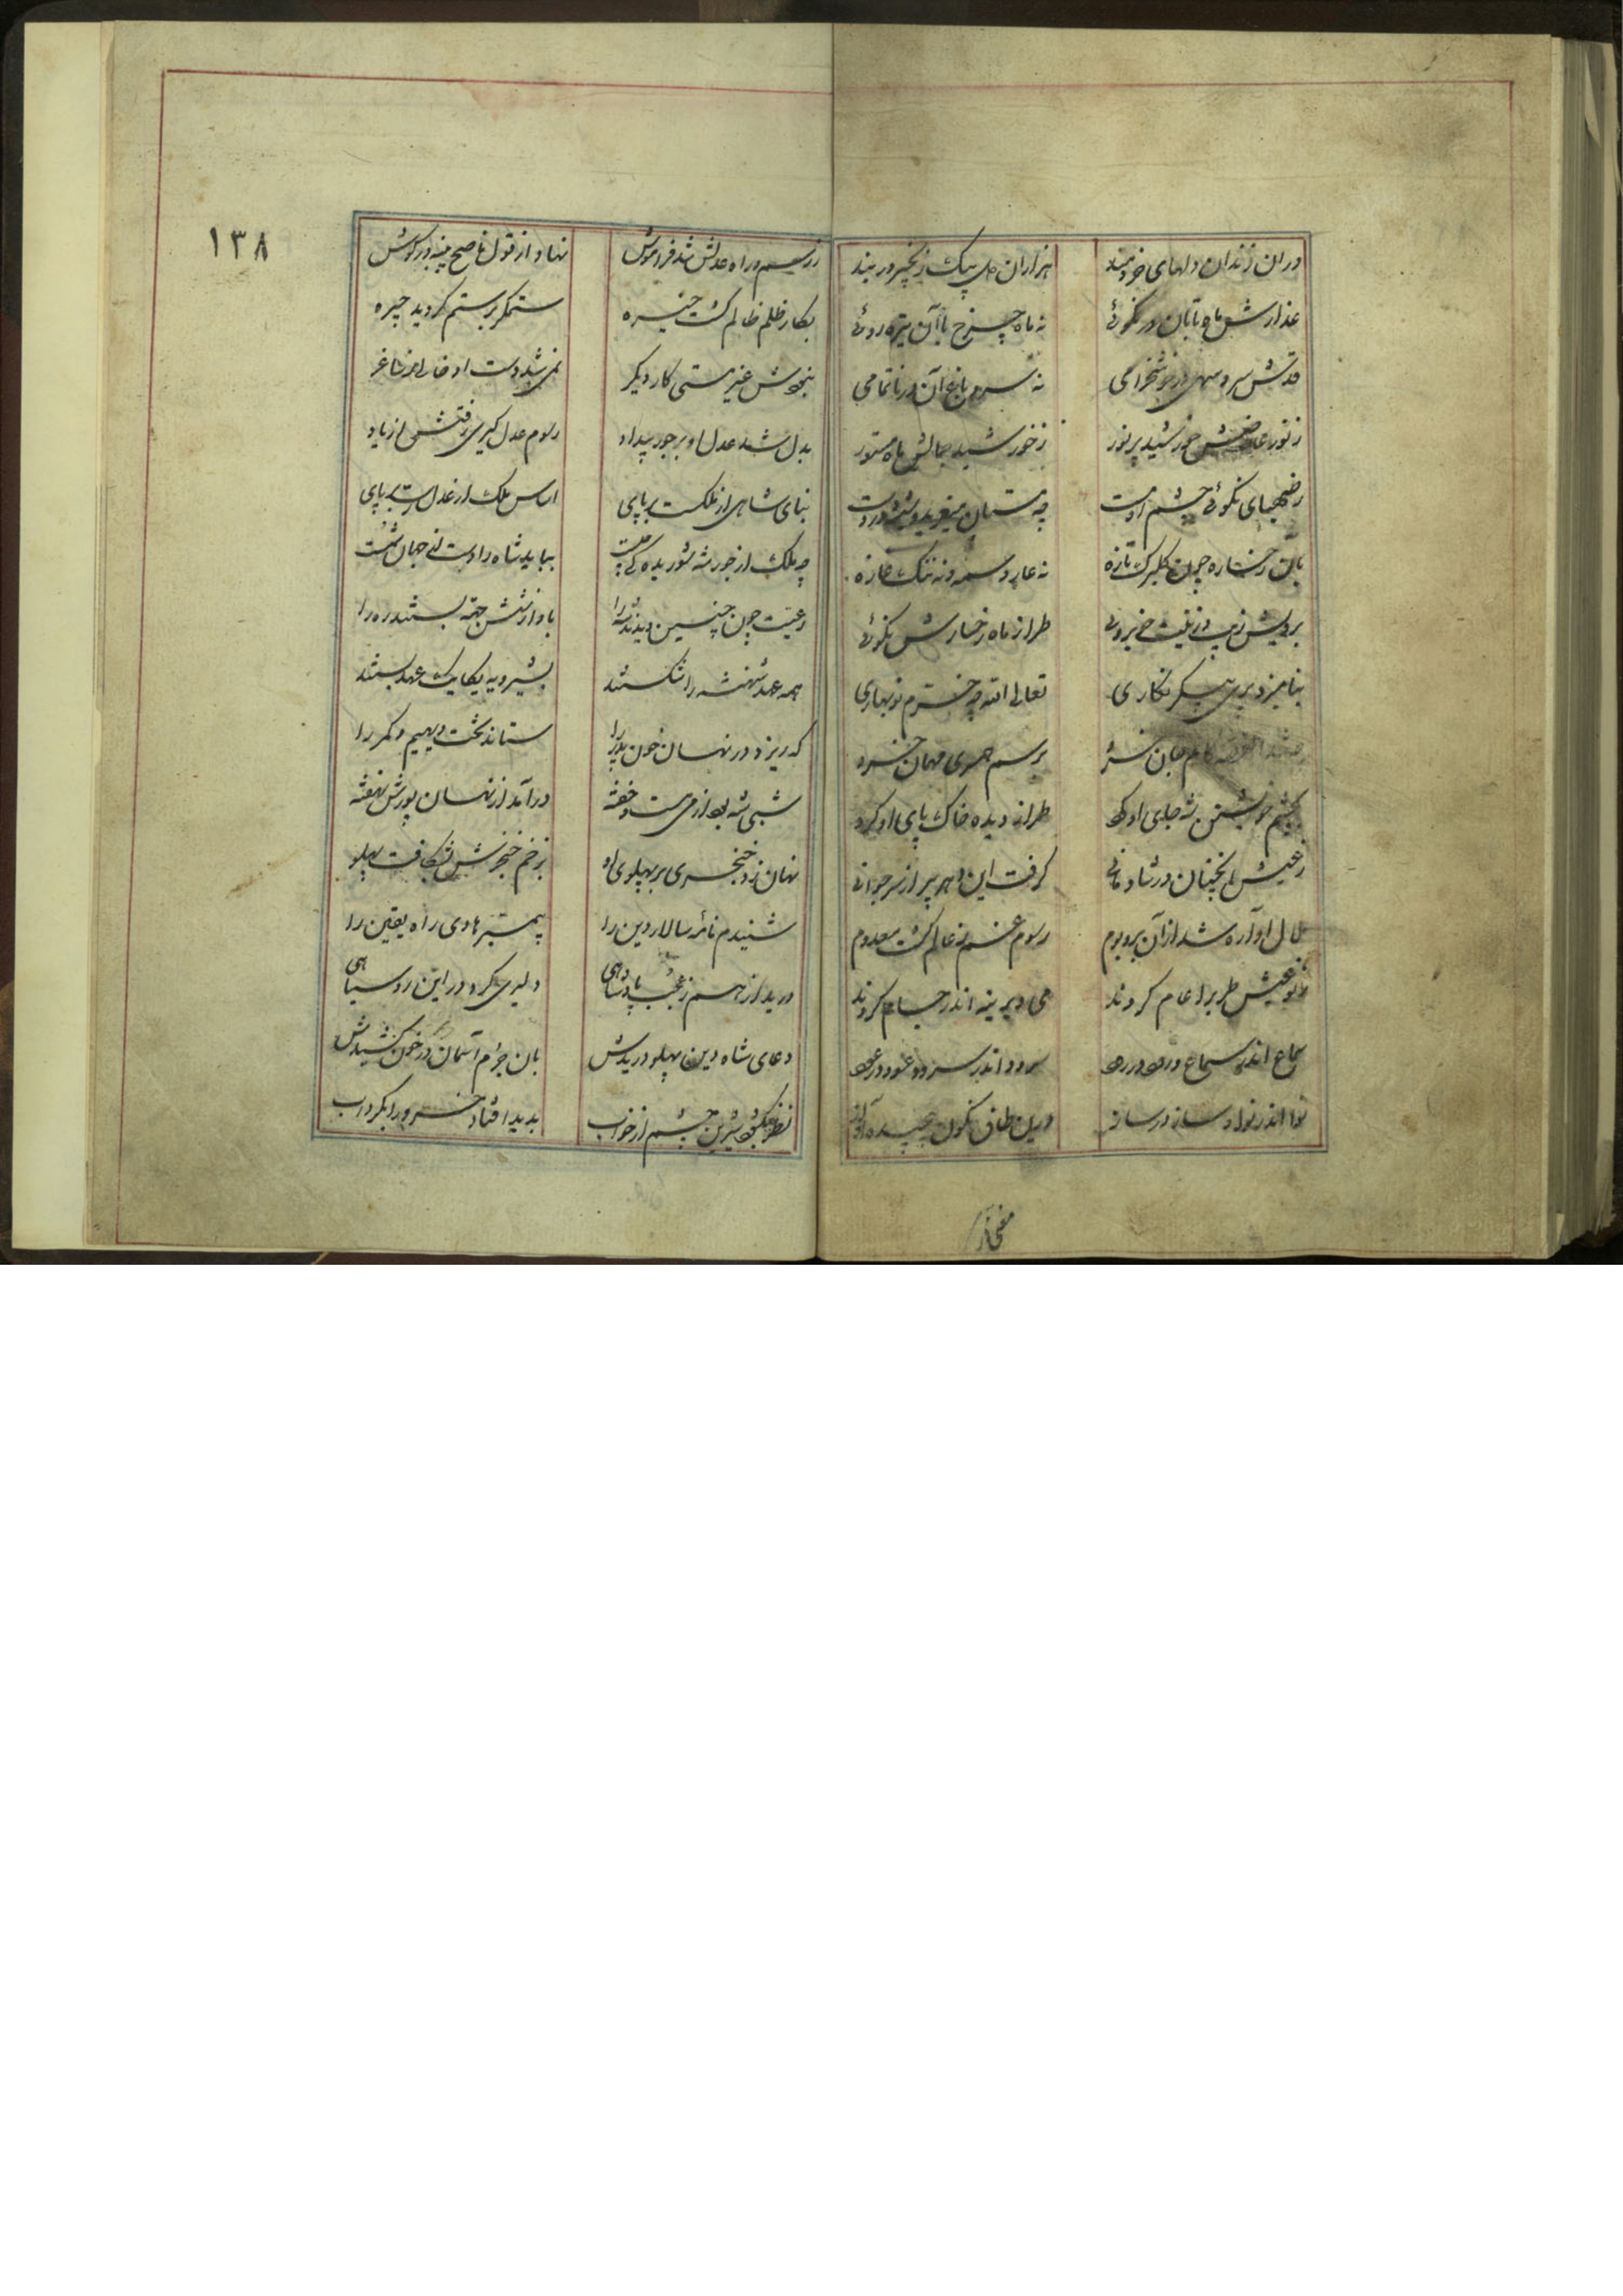 دران زندان دلهای خردمند هزاران دل بیک زنجیر در بند
عذارش ماه تابان در نکوئی نه ماه چرخ با آن تیره روئی
قدش سرو سهی در خوشخرامی نه سرو باغ آن در ناتمامی
ز نور عارضش خورشید پر نور ز خورشید جمالش ماه مستور
نکوئی چشم او مست چه مستان
بان رخساره چون گلبرگ تازه نه عار وسمه و نه ننگ غازه
برویش زیب و زینت طراز ماه رخسارش نکوئی
بنامیزد پری پیکر نگاری تعالی الله چه خرم نوبهاری
کام جان خسرو برسم همسری مهمان خسرو
بچشم خویشتن شه جای او کرد طراز دیده خاک پای او کرد
ز عیش آنچنان در شادمانی گرفت این دهر پیر از سر جوانی
ملال آواره شد از آن بر و بوم رسوم غم ز عالم گشت معدوم
ز نو عیش طرب را عام کردند می دیرینه اندر جام کردند
سماع اندر سماع و رود در رود سرود اندر سرود و عود در عود
نوا اندر نوا و ساز در ساز درین طاق نگون پیچیده آواز
مغنی از
۱۳۸
ز رسم و راه عدلش شد فراموش نهاد از قول ناصح پنبه در گوش
بکار ظلم ظالم گشت خیره ستمگر بر ستم گردید چیره
نبودش غیر مستی کار دیگر نمی شد دست او خالی ز ساغر
بدل شد عدل او بر جور بیداد رسوم عدل گیری رفتش از یاد
بنای شاهی از ملکست بر پای اساس ملک از عدل است بر پای
چه ملک از جور شه شوریده گی یافت بباید شاه را دست از جهان شست
رعیت چون چنین دیدند شه را باو از شش جهت بستند ره را
همه عهد شهنشه را شکستند بشیرویه یکایک عهد بستند
که ریزد در نهان خون پدر را ستاند تخت و دیهیم و کمر را
شبی شه بود از می مست و خفته درآمد از نهان پورش نهفته
نهان زد خنجری بر پهلوی او بزخم خنجرش بشکافت پهلو
شنیدم نامه سالار دین را پیمبر هادی راه یقین را
درید از هم ز عجب پادشاهی دلیری کرد در این روسیاهی
دعای شاه دین پهلو دریدش بان جرم آسمان در خون کشیدش
نظر بگشود شیرین چشم از خواب بدید افتاد خسرو را بگرداب